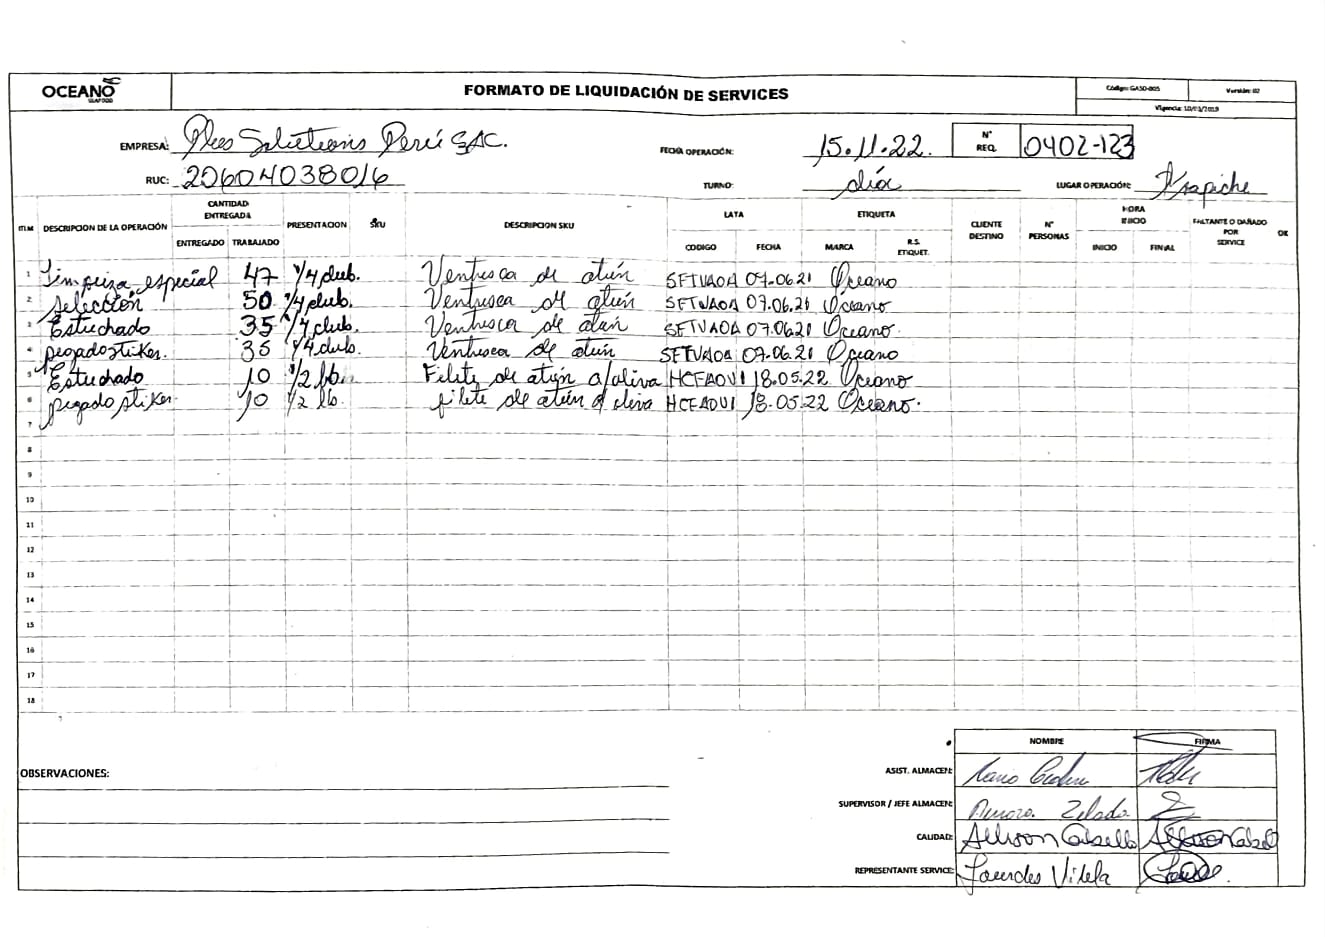 OCEANO SEAFOOD
FORMATO DE LIQUIDACIÓN DE SERVICES
Código: GASO-005 Versión: 02
Vigencia: 10/03/2019
EMPRESA: Plus Solutions Perú SAC.
FECHA OPERACIÓN: 15.11.22.
N° REQ. 0402-123
RUC: 20604038016
TURNO: día
LUGAR OPERACIÓN: Trapiche
ITEM DESCRIPCION DE LA OPERACIÓN CANTIDAD ENTREGADA ENTREGADO TRABAJADO PRESENTACION SKU DESCRIPCION SKU LATA CODIGO FECHA ETIQUETA MARCA R.S. ETIQUET. CLIENTE DESTINO N° PERSONAS HORA INICIO INICIO FINAL FALTANTE O DAÑADO POR SERVICE OK
1 Limpieza especial 47 1/4 club. Ventresca de atún SETVAOA 07.06.21 Oceano
2 Selección 50 1/4 club. Ventresca de atún SETVAOA 07.06.21 Oceano
3 Estuchado 35 1/4 club. Ventresca de atún SETVAOA 07.06.21 Oceano.
4 pegado stiker. 35 1/4 club. Ventresca de atún SETVAOA 07.06.21 Oceano
5 Estuchado 10 1/2 lb. Filete de atún a/oliva HCFAOVI 18.05.22 Oceano
6 pegado stiker 10 1/2 lb. filete de atún a/oliva HCFAOVI 18.05.22 Oceano.
7
8
9
10
11
12
13
14
15
16
17
18
NOMBRE FIRMA
OBSERVACIONES:
ASIST. ALMACEN:
SUPERVISOR / JEFE ALMACEN: Zelada
CALIDAD: Allison Cabello
REPRESENTANTE SERVICE: Lourdes Vilela